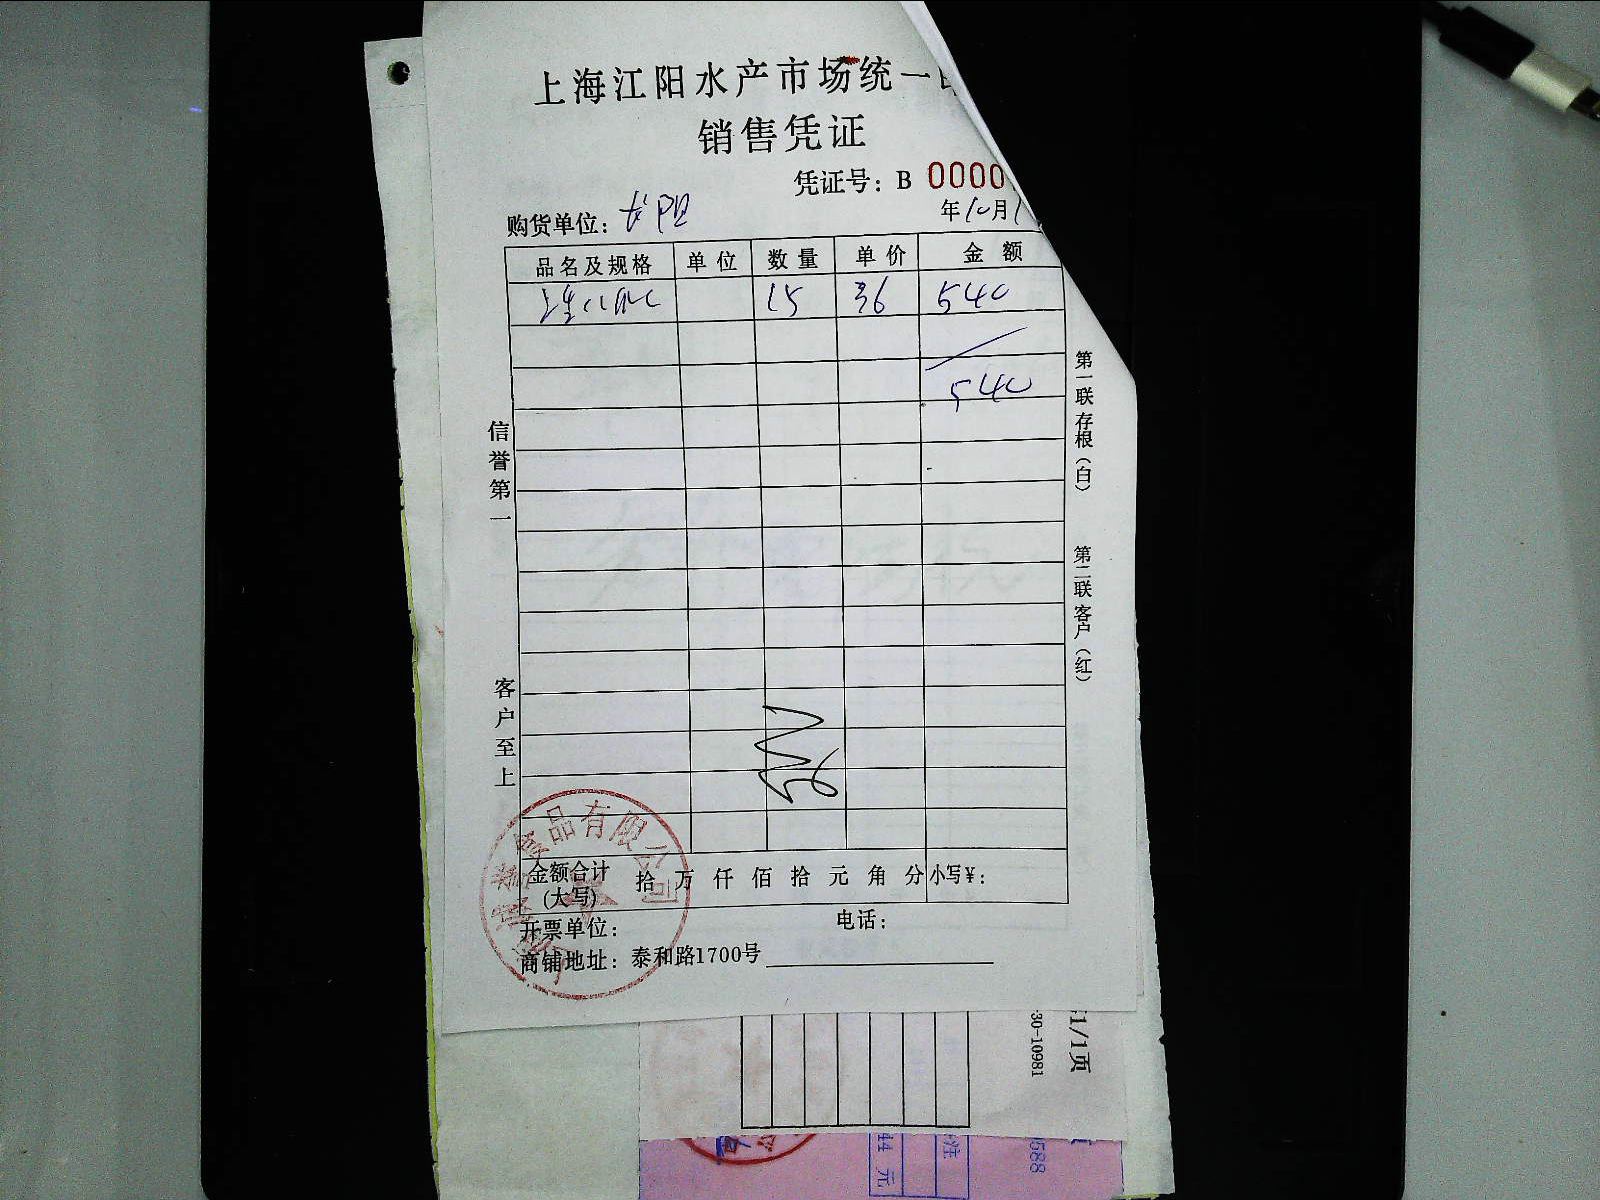 上海江阳水产市场统一
销售凭证
凭证号：B 0000
购货单位：长阳 年10月1
品名及规格 单位 数量 单价 金额
15 36 540
540
信誉第一
客户至上
第一联存根（白）
第二联客户（红）
金额合计（大写） 拾 万 仟 佰 拾 元 角 分 小写¥：
食品有限公司
开票单位： 电话：
商铺地址：泰和路1700号
1/1页
30-10981
44 元
注
0588